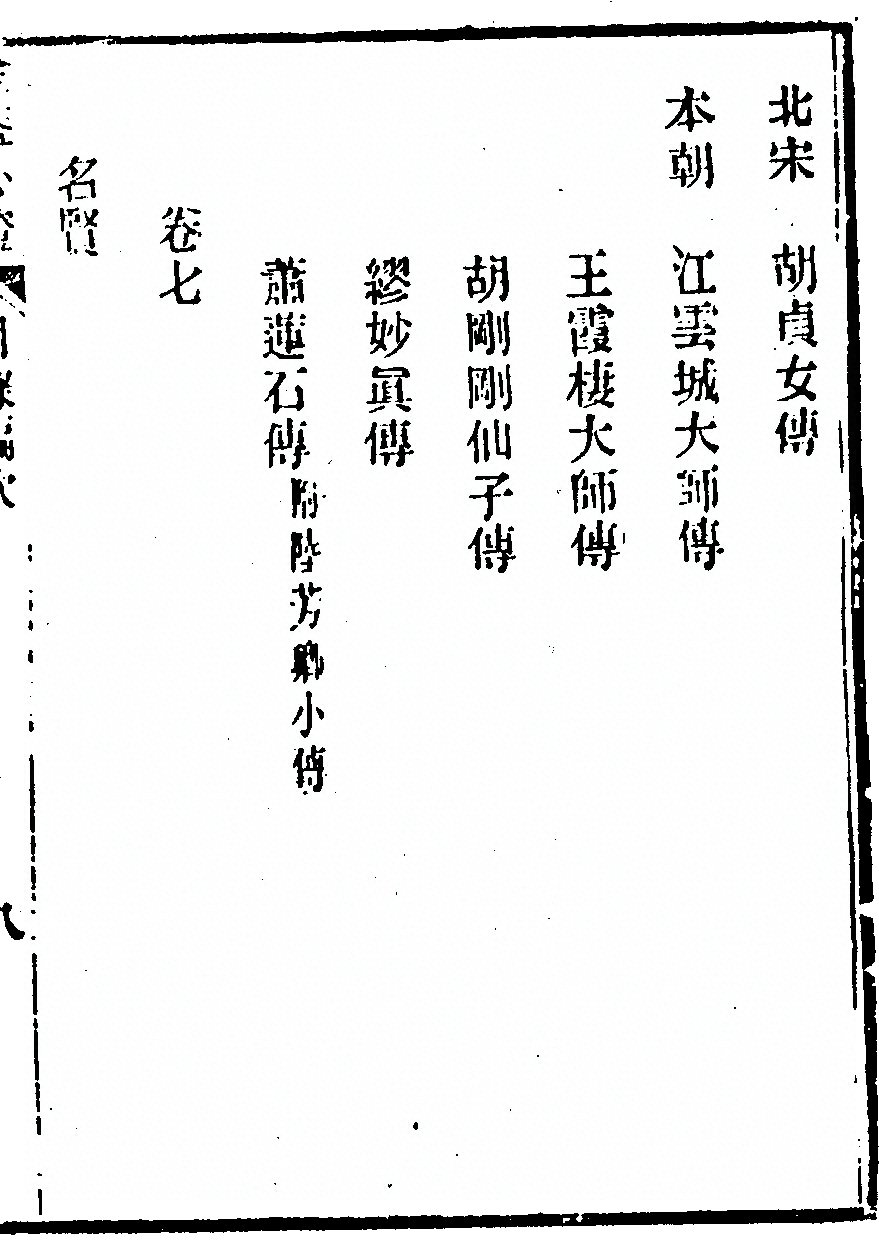 北宋　胡貞女傳
本朝　江雲城大師傳
王霞棲大師傳
胡剛剛仙子傳
繆妙眞傳
蕭蓮石傳附陸芳卿小傳
卷七
名賢